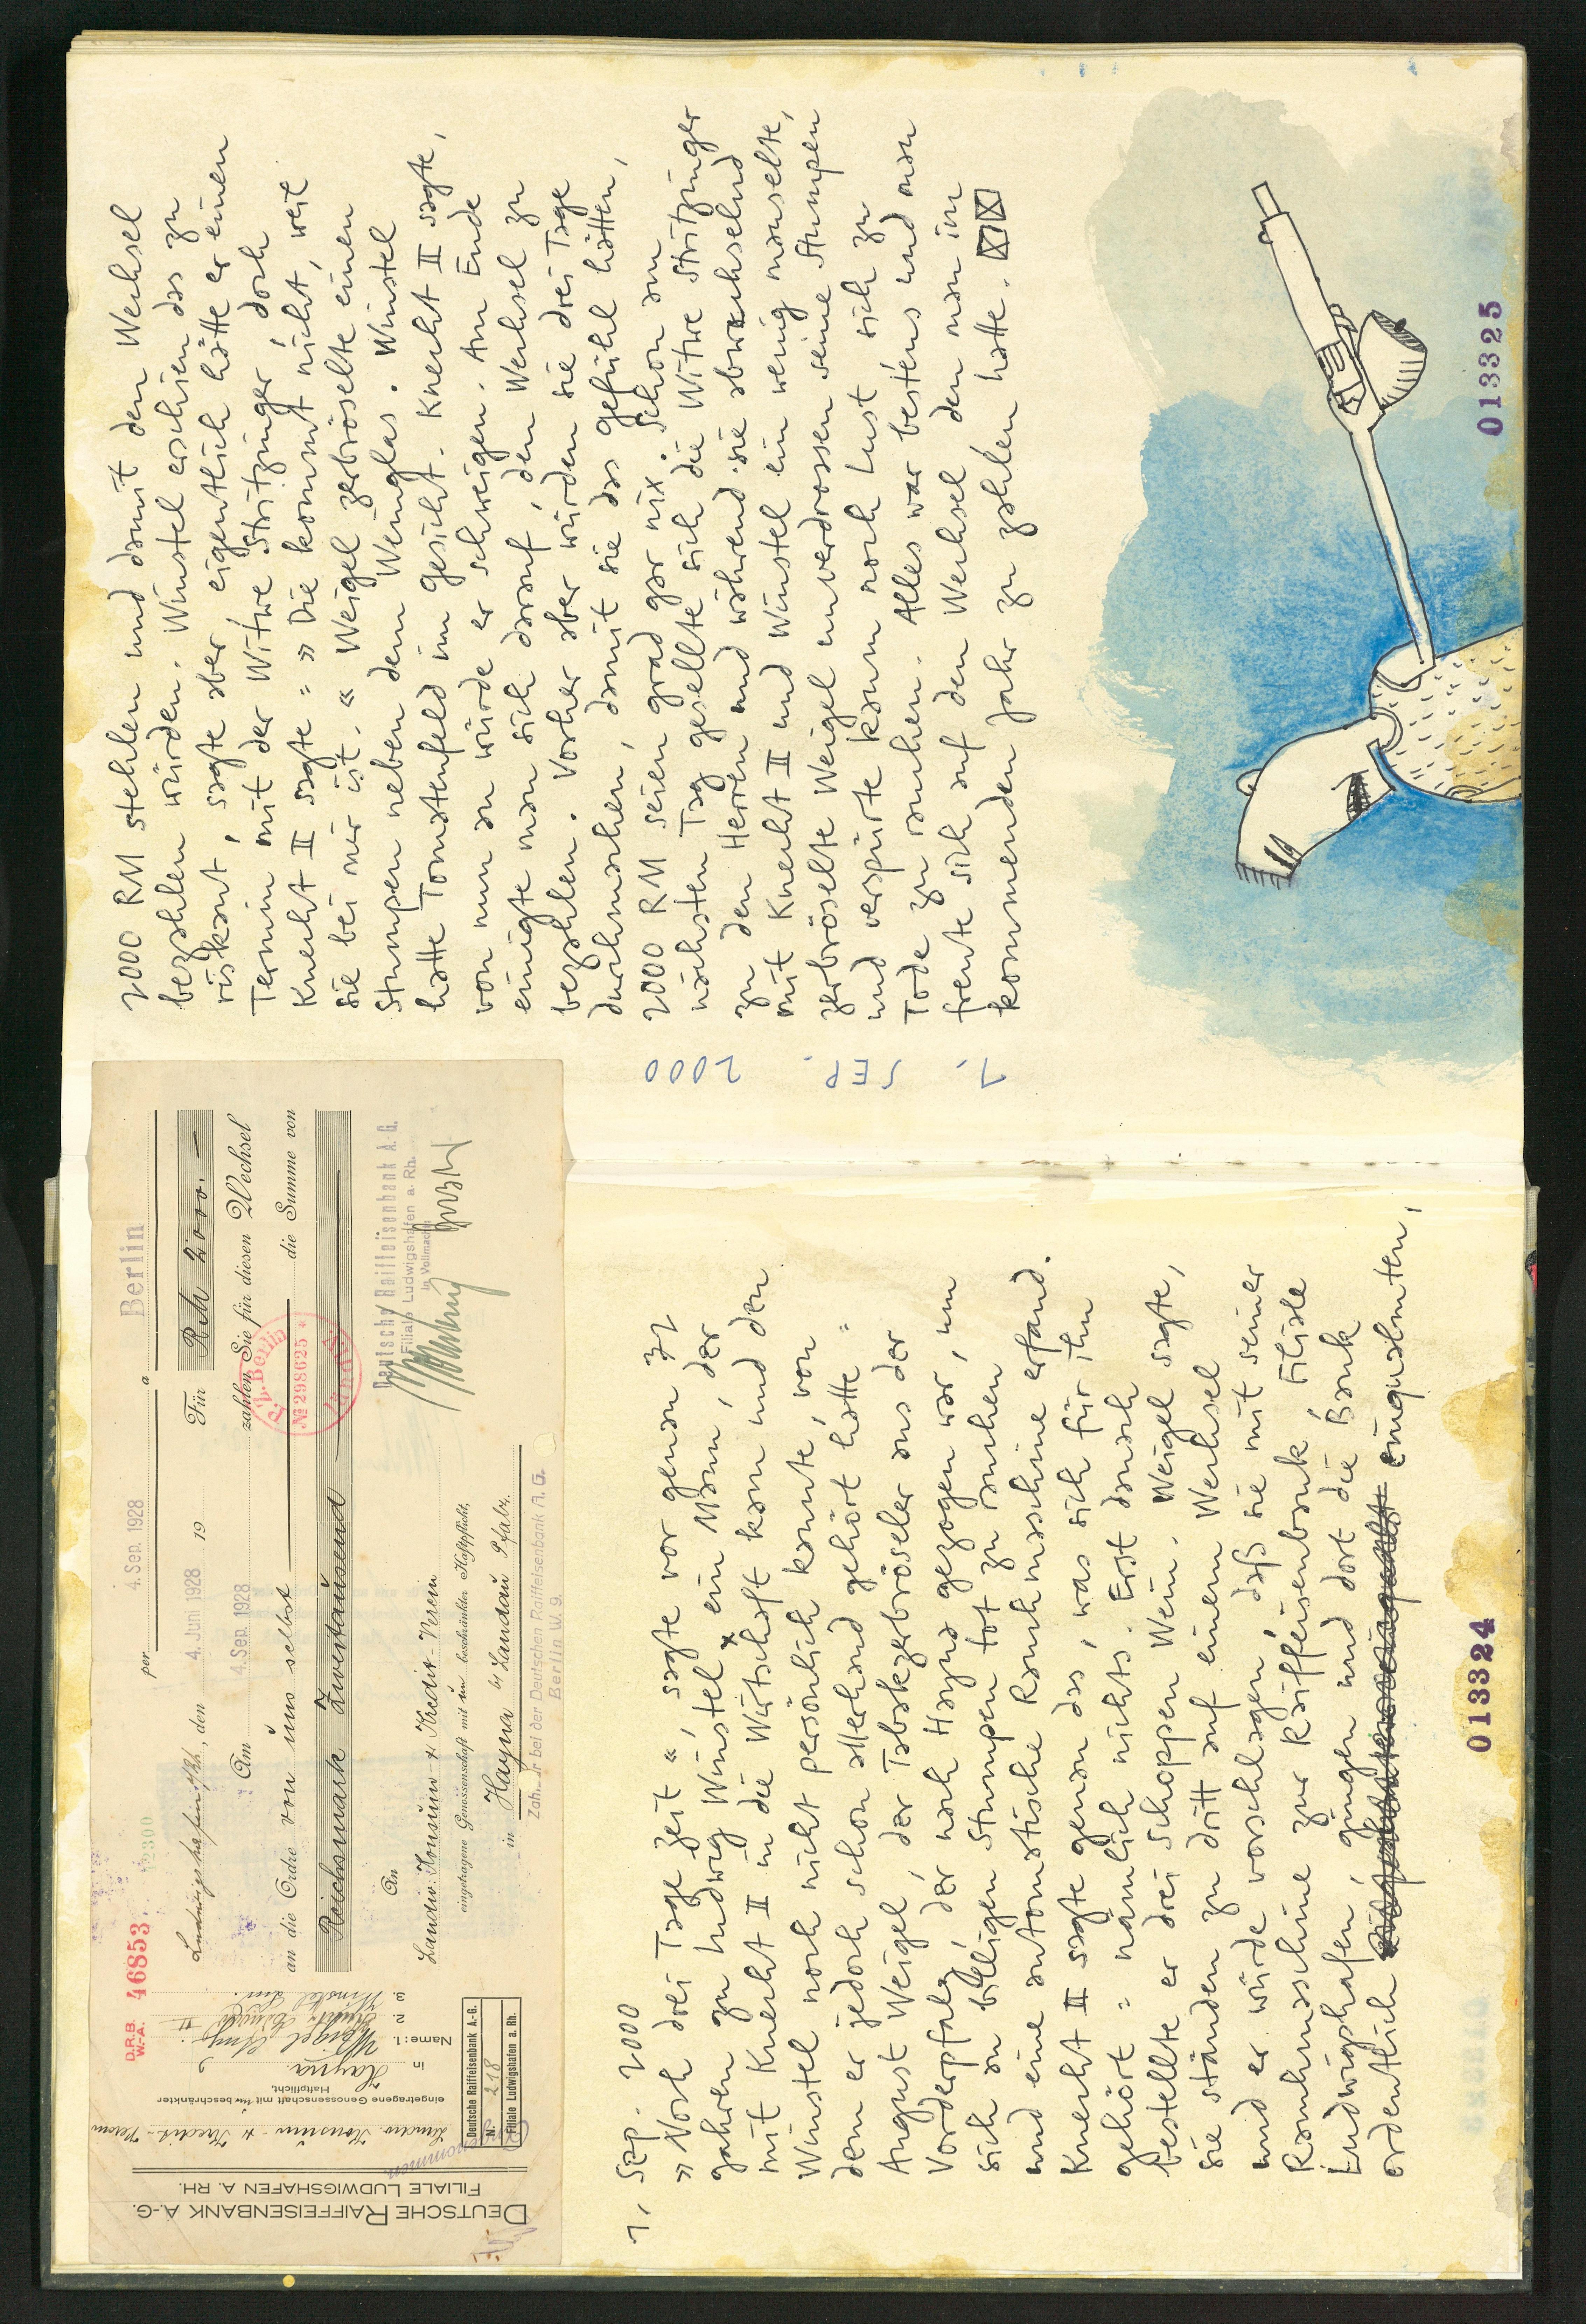 DEUTSCHE RAIFFEISENBANK A.-G.
FILIALE LUDWIGSHAFEN A. RH.
Landw. Konsum- u. Kredit-Verein
eingetragene Genossenschaft mit un beschränkter
Haftpflicht,
in Hayna
Name: 1. Weigel
2. Knecht II
3. Winstel Lud.
Deutsche Raiffeisenbank A.-G.
No. 218
Filiale Ludwigshafen a. Rh.
D.R.B.
W.-A. 46853
per 4. Sep. 1928 a Berlin
Ludwigshafen a/Rh., den 4. Juni 1928 19 Für RM 2000.—
Am 4. Sep. 1928 zahlen Sie für diesen Wechsel
an die Ordre von uns selbst die Summe von
R.b. Berlin
№ 298625 *
Reichsmark Zweitausend
An
Landw. Konsum- u. Kredit-Verein
eingetragene Genossenschaft mit un beschränkter Haftpflicht,
in Hayna b/ Landau Pfalz.
Zahlbar bei der Deutschen Raiffeisenbank A.G.
Berlin W. 9.
Deutsche Raiffeisenbank A. G.
Filiale Ludwigshafen a. Rh.
In Vollmacht
1, Sep. 2000
» Noch drei Tage Zeit «, sagte vor genau 72
Jahren zu Ludwig Winstel * ein Mann, der
mit Knecht II in die Wirtschaft kam und den
Winstel noch nicht persönlich kannte, von
dem er jedoch schon allerhand gehört hatte =
August Weigel, der Tabakzerbröseler aus der
Vorderpfalz, der nach Hayna gezogen war, um
sich an billigen Stumpen tot zu rauchen
und eine automatische Rauchmaschine erfand.
Knecht II sagte genau das, was sich für ihn
gehört = nämlich nichts. Erst danach
bestellte er drei Schoppen Wein. Weigel sagte,
sie ständen zu dritt auf einem Wechsel
und er würde vorschlagen, daß sie mit seiner
Rauchmaschine zur Raiffeisenbank, Filiale
Ludwigshafen, gingen und dort die Bank
ordentlich einqualmten,
013324
2000 RM stehlen und damit den Wechsel
bezahlen würden. Winstel erschien das zu
riskant, sagte aber, eigentlich hätte er einen
Termin mit der Witwe Stritzinger, doch
Knecht II sagte = » Die kommt nicht, weil
sie bei mir ist. « Weigel zerbröselte einen
Stumpen neben dem Weinglas. Winstel
hatte Tomatenfeld im Gesicht. Knecht II sagte,
von nun an würde er schweigen. Am Ende
einigte man sich darauf, den Wechsel zu
bezahlen. Vorher aber würden sie drei Tage
durchmachen, damit sie das Gefühl hätten,
2000 RM seien grad gar nix. Schon am
nächsten Tag gesellte sich die Witwe Stritzinger
zu den Herren und während sie abwechselnd
mit Knecht II und Winstel ein wenig mauselte,
zerbröselte Weigel unverdrossen seine Stumpen
und verspürte kaum noch Lust, sich zu
Tode zu rauchen. Alles war bestens und man
freute sich auf den Wechsel, den man im
kommenden Jahr zu zahlen hatte.
1. SEP. 2000
013325